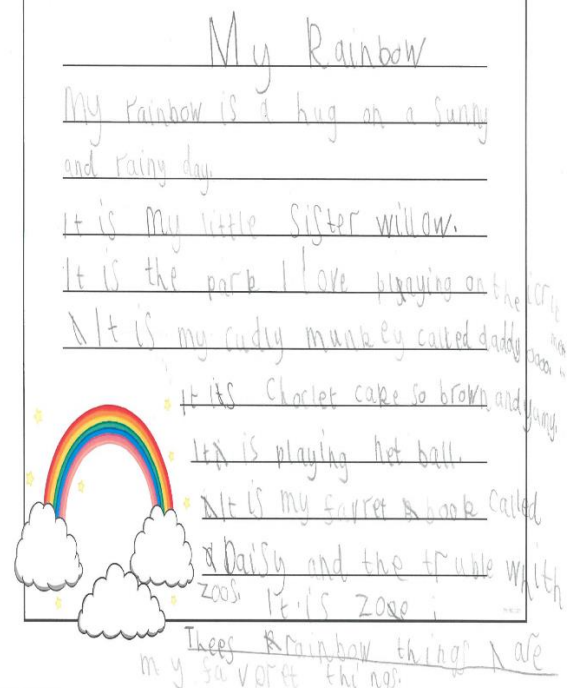 My Rainbow
My rainbow is a hug on a sunny
and rainy day.
It is my little sister willow.
It is the park I love playing on the
It is my cudly munkey called daddy
It is Choclet cake so brown and yumy.
It is playing net ball.
It is my favret book called
Daisy and the truble whith
zoos. It is zoe
Thees rainbow things are
my favoret things.